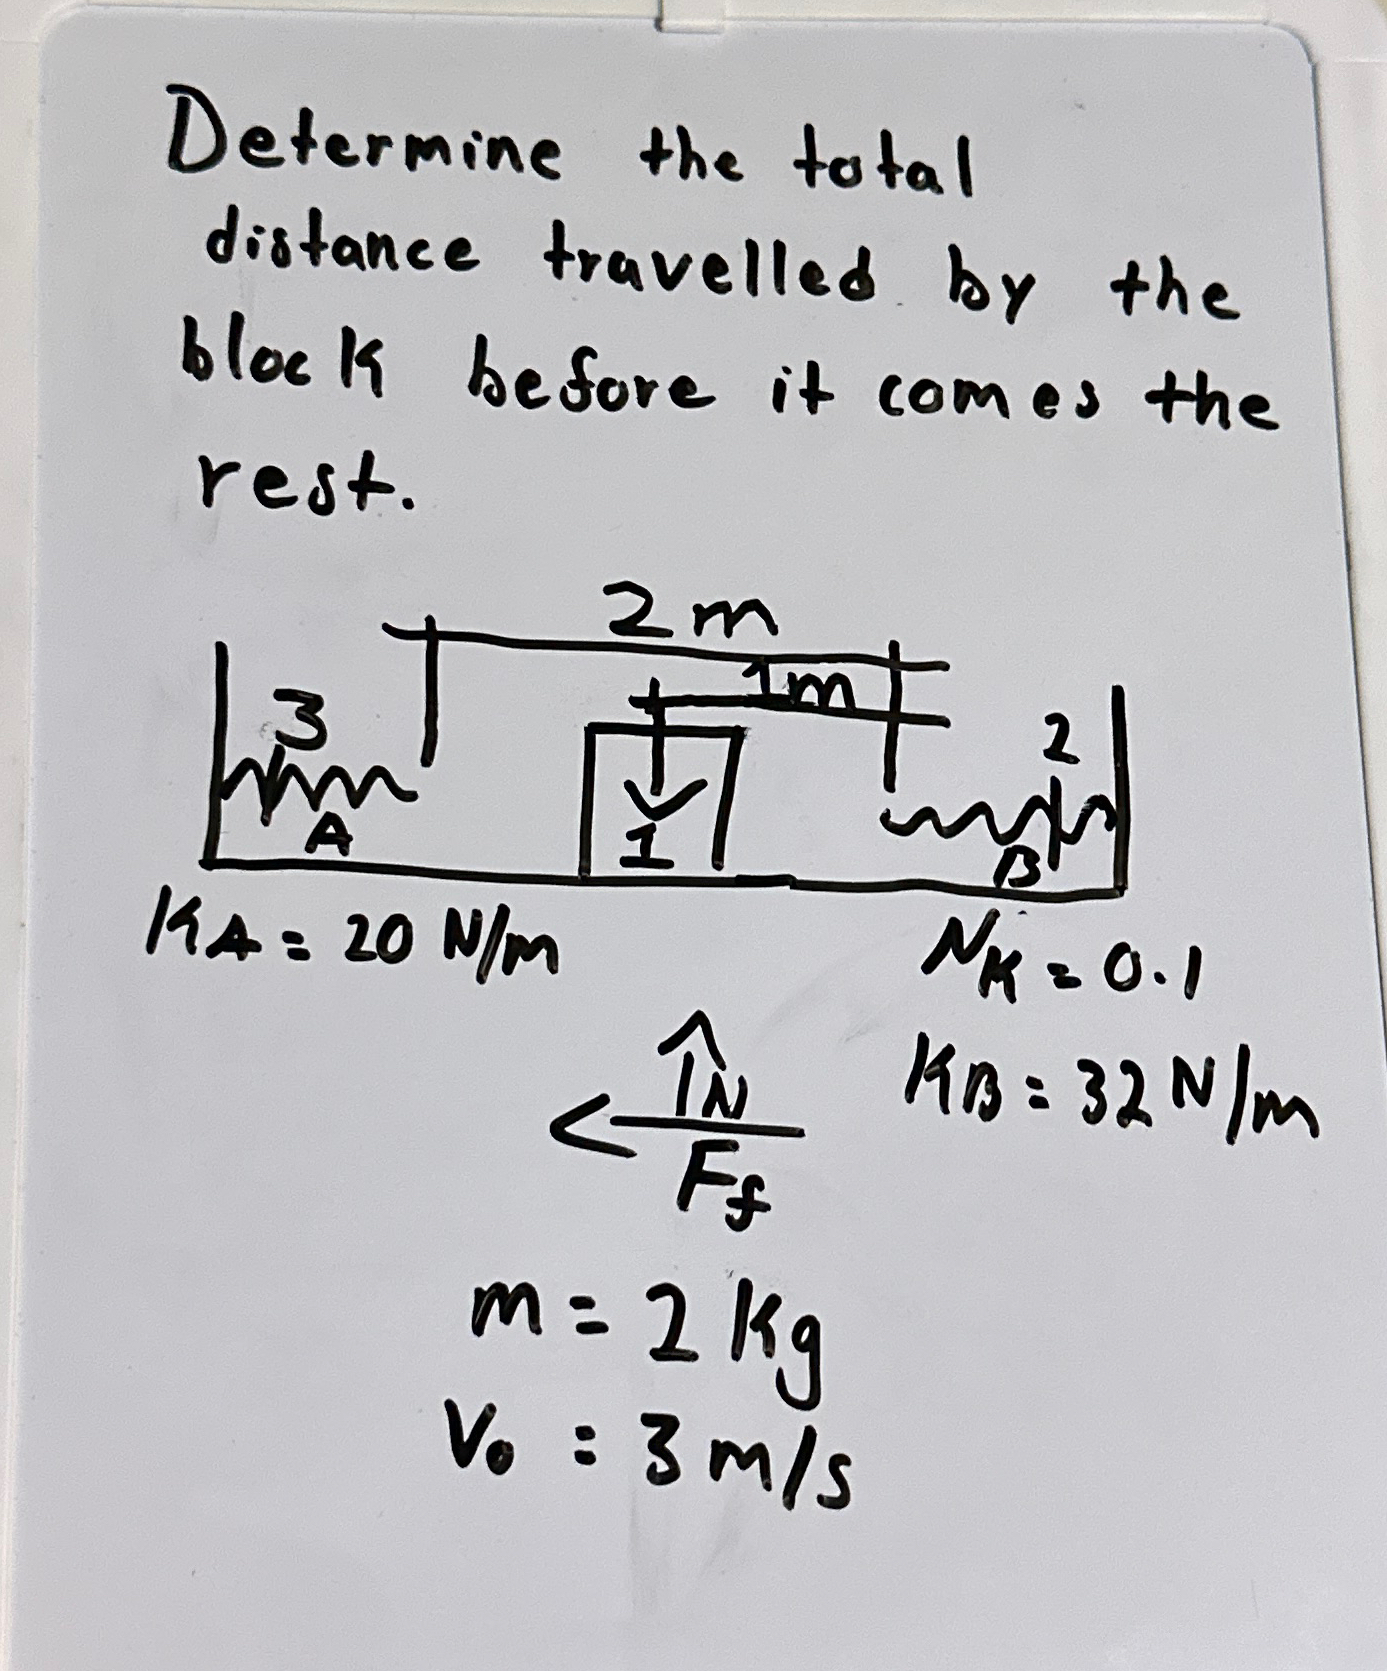 Determine the total
distance travelled by the
block before it comes the
rest.
2 m
1m
3
2
A
1
B
KA = 20 N/m
NK = 0.1
KB = 32 N/m
N
Ff
m = 2 kg
Vo = 3 m/s